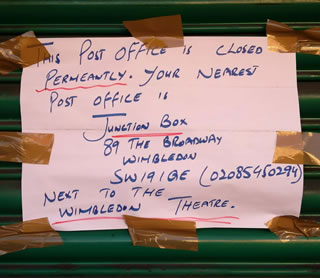 THIS POST OFFICE IS CLOSED
PERMEANTLY. YOUR NEAREST
POST OFFICE IS
JUNCTION BOX
89 THE BROADWAY
WIMBLEDON
SW191QE (02085450294)
NEXT TO THE
WIMBLEDON THEATRE.